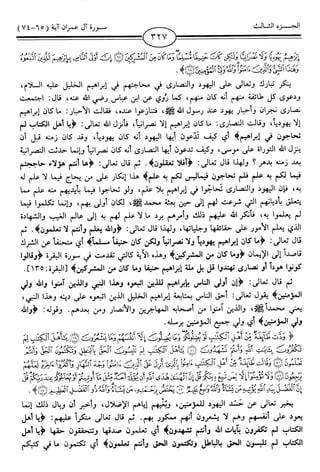 الجـــزء الثـالــث ٣٢٧ سورة آل عمران آية (٦٥-٧٤)
إِبْرَاهِيمُ يَهُودِيًّا وَلَا نَصْرَانِيًّا وَلَكِن كَانَ حَنِيفًا مُّسْلِمًا وَمَا كَانَ مِنَ الْمُشْرِكِينَ إِنَّ أَوْلَى النَّاسِ بِإِبْرَاهِيمَ لَلَّذِينَ اتَّبَعُوهُ
وَهَذَا النَّبِيُّ وَالَّذِينَ آمَنُوا وَاللَّهُ وَلِيُّ الْمُؤْمِنِينَ﴾.
ينكر تبارك وتعالى على اليهود والنصارى في محاجتهم في إبراهيم الخليل عليه السلام،
ودعوى كل طائفة منهم أنه كان منهم، كما رُوي عن ابن عباس رضي الله عنه، قال: اجتمعت
نصارى نجران وأحبار يهود عند رسول الله ﷺ، فتنازعوا عنده، فقالت الأحبار: ما كان إبراهيم
إلا يهودياً، وقالت النصارى: ما كان إبراهيم إلا نصرانياً، فأنزل الله تعالى: ﴿يا أهل الكتاب لم
تحاجون في إبراهيم﴾ أي كيف تدّعون أيها اليهود أنه كان يهودياً، وقد كان زمنه قبل أن
ينزل الله التوراة على موسى، وكيف تدعون أيها النصارى أنه كان نصرانياً وإنما حدثت النصرانية
بعد زمنه بدهر؟ ولهذا قال تعالى: ﴿أفلا تعقلون﴾. ثم قال تعالى: ﴿ها أنتم هؤلاء حاججتم
فيما لكم به علم فلم تحاجون فيماليس لكم به علم﴾ هذا إنكار على من يحاج فيما لا علم له
به، فإن اليهود والنصارى تحاجّوا في إبراهيم بلا علم، ولو تحاجوا فيما بأيديهم منه علم مما
يتعلق بأديانهم التي شرعت لهم إلى حين بعثة محمد ﷺ، لكان أولى بهم، وإنما تكلموا فيما
لم يعلموا به، فأنكر الله عليهم ذلك وأمرهم برد ما لا علم لهم به إلى عالم الغيب والشهادة
الذي يعلم الأمور على حقائقها وجلياتها، ولهذا قال تعالى: ﴿والله يعلم وأنتم لا تعلمون﴾. ثم
قال تعالى: ﴿ما كان إبراهيم يهودياً ولا نصرانياً ولكن كان حنيفاً مسلماً﴾ أي متحنفاً عن الشرك
قاصداً إلى الإيمان ﴿وما كان من المشركين﴾ وهذه الآية كالتي تقدمت في سورة البقرة ﴿وقالوا
كونوا هوداً أو نصارى تهتدوا قل بل ملة إبراهيم حنيفا وما كان من المشركين﴾ [البقرة: ١٣٥].
ثم قال تعالى: ﴿إن أولى الناس بإبراهيم للذين اتبعوه وهذا النبي والذين آمنوا والله ولي
المؤمنين﴾ يقول تعالى: أحق الناس بمتابعة إبراهيم الخليل الذين اتبعوه على دينه وهذا النبي،
يعني محمداً ﷺ، والذين آمنوا من أصحابه المهاجرين والأنصار ومن بعدهم. وقوله: ﴿والله
ولي المؤمنين﴾ أي ولي جميع المؤمنين برسله.
يخبر تعالى عن حسد اليهود للمؤمنين، وبغيهم إياهم الإضلال، وأخبر أن وبال ذلك إنما
يعود على أنفسهم وهم لا يشعرون أنهم ممكور بهم. ثم قال تعالى منكراً عليهم: ﴿يا أهل
الكتاب لم تكفرون بآيات الله وأنتم تشهدون﴾ أي تعلمون صدقها وتتحققون حقها ﴿يا أهل
الكتاب لم تلبسون الحق بالباطل وتكتمون الحق وأنتم تعلمون﴾ أي تكتمون ما في كتبكم